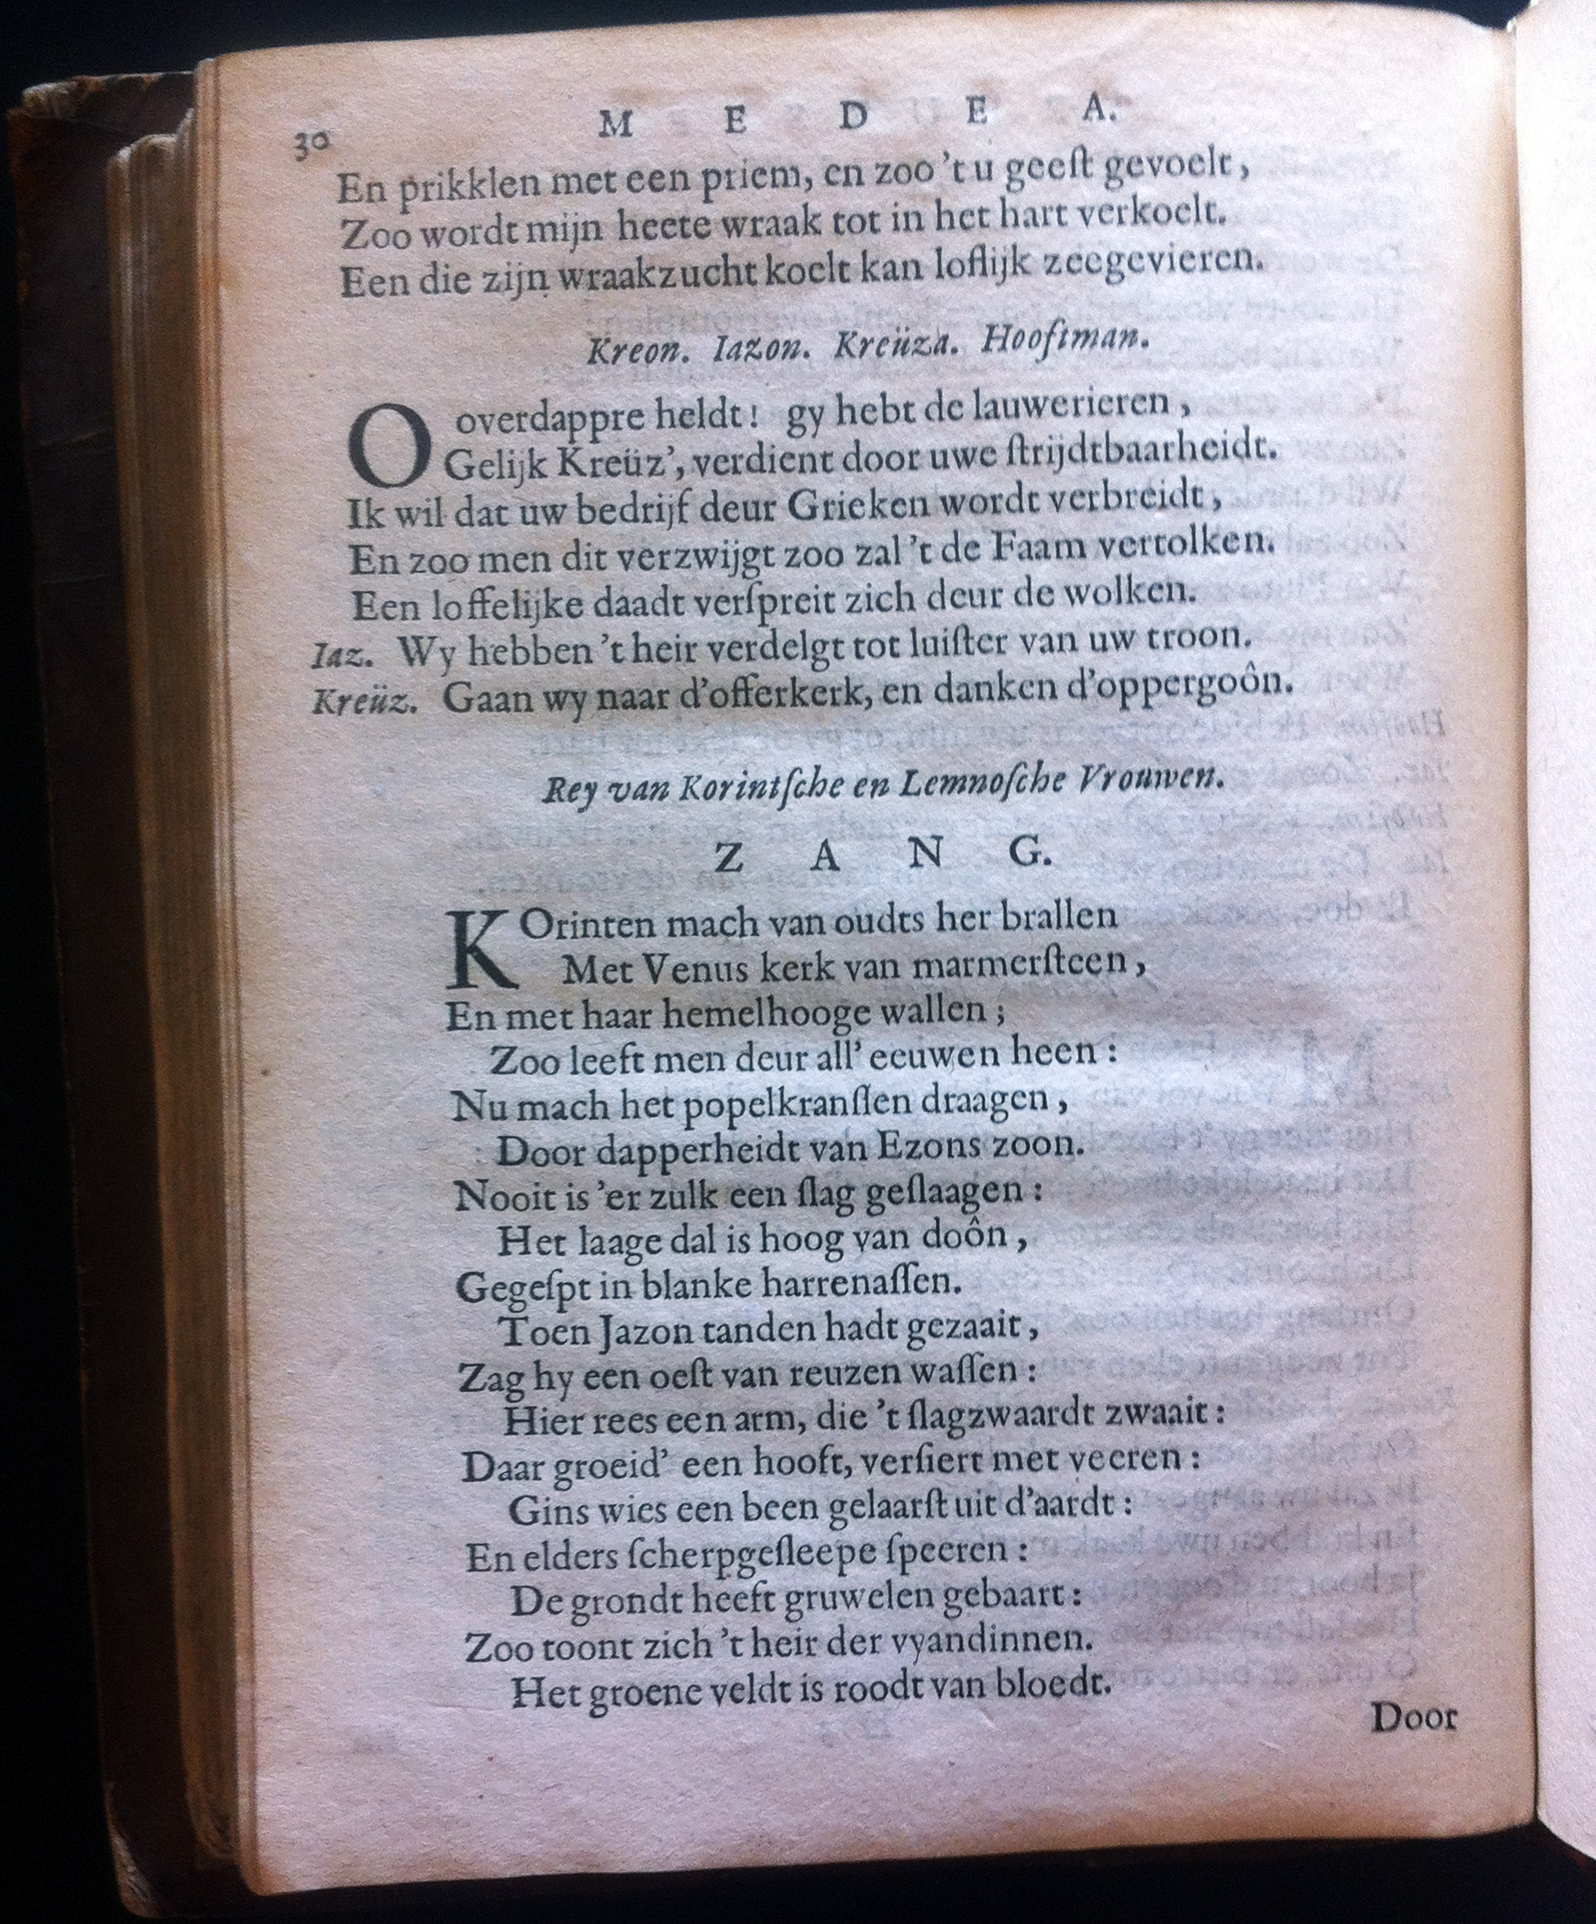 30 M E D E A.
En prikklen met een priem, en zoo 't u geeſt gevoelt,
Zoo wordt mijn heete wraak tot in het hart verkoelt.
Een die zijn wraakzucht koelt kan loflijk zeegevieren.
Kreon. Iazon. Kreüza. Hooftman.
O overdappre heldt! gy hebt de lauwerieren,
Gelijk Kreüz', verdient door uwe ſtrijdtbaarheidt.
Ik wil dat uw bedrijf deur Grieken wordt verbreidt,
En zoo men dit verzwijgt zoo zal 't de Faam vertolken.
Een loffelijke daadt verſpreit zich deur de wolken.
Iaz. Wy hebben 't heir verdelgt tot luiſter van uw troon.
Kreüz. Gaan wy naar d'offerkerk, en danken d'oppergoôn.
Rey van Korintſche en Lemnoſche Vrouwen.
Z A N G.
KOrinten mach van oudts her brallen
Met Venus kerk van marmerſteen,
En met haar hemelhooge wallen;
Zoo leeft men deur all' eeuwen heen:
Nu mach het popelkranſſen draagen,
Door dapperheidt van Ezons zoon.
Nooit is 'er zulk een ſlag geſlaagen:
Het laage dal is hoog van doôn,
Gegeſpt in blanke harrenaſſen.
Toen Jazon tanden hadt gezaait,
Zag hy een oeſt van reuzen waſſen:
Hier rees een arm, die 't ſlagzwaardt zwaait:
Daar groeid' een hooft, verſiert met veeren:
Gins wies een been gelaarſt uit d'aardt:
En elders ſcherpgeſleepe ſpeeren:
De grondt heeft gruwelen gebaart:
Zoo toont zich 't heir der vyandinnen.
Het groene veldt is roodt van bloedt.
Door